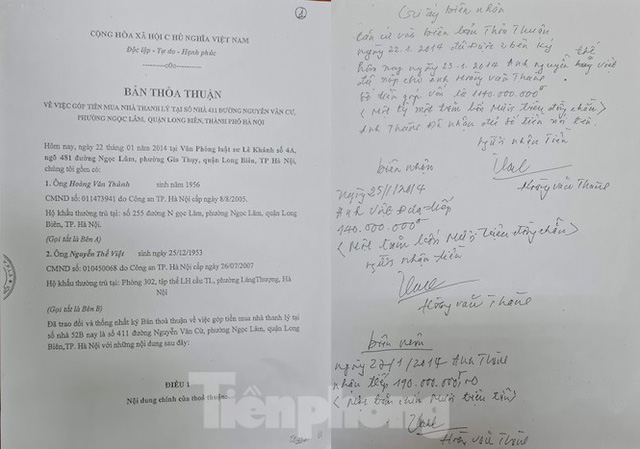 CỘNG HÒA XÃ HỘI CHỦ NGHĨA VIỆT NAM
Độc lập - Tự do - Hạnh phúc
BẢN THỎA THUẬN
VỀ VIỆC GÓP TIỀN MUA NHÀ THANH LÝ TẠI SỐ NHÀ 411 ĐƯỜNG NGUYỄN VĂN CỪ,
PHƯỜNG NGỌC LÂM, QUẬN LONG BIÊN, THÀNH PHỐ HÀ NỘI
Hôm nay, ngày 22 tháng 01 năm 2014 tại Văn Phòng luật sư Lê Khánh số 4A,
ngõ 481 đường Ngọc Lâm, phường Gia Thụy, quận Long Biên, TP Hà Nội,
chúng tôi gồm có:
1. Ông Hoàng Văn Thành sinh năm 1956
CMND số: 011473941 do Công an TP. Hà Nội cấp ngày 8/8/2005.
Hộ khẩu thường trú tại: số 255 đường Ngọc Lâm, phường Ngọc Lâm, quận Long
Biên, TP. Hà Nội.
(Gọi tắt là Bên A)
2. Ông Nguyễn Thế Việt sinh ngày 25/12/1953
CMND số: 010450068 do Công an TP. Hà Nội cấp ngày 26/07/2007
Hộ khẩu thường trú tại: Phòng 302, tập thể LH cầu TL, phường LángThượng, Hà
Nội
(Gọi tắt là Bên B)
Đã trao đổi và thống nhất ký Bản thoả thuận về việc góp tiền mua nhà thanh lý tại
số nhà 52B nay là số 411 đường Nguyễn Văn Cừ, phường Ngọc Lâm, quận Long
Biên,TP. Hà Nội với những nội dung sau đây:
ĐIỀU 1
Nội dung chính của thoả thuận:
Tiền phong
Giấy biên nhận
Căn cứ vào biên bản Thỏa Thuận
ngày 22.1.2014 đã được 2 bên ký
hôm nay ngày 23.1.2014 Anh nguyễn thế việt
Số tiền góp vốn là 140.000.000đ
< Một trăm bốn Mươi triệu đồng chẵn>
Anh Thành đã nhận đủ số tiền nói trên
người nhận Tiền
Hoàng văn Thành
biên nhận
ngày 25/1/2014
Anh Việt đưa tiếp
140.000.000đ
< Một trăm bốn Mươi triệu đồng chẵn>
người nhận tiền
Hoàng văn Thành
ngày 27/1/2014 Anh Thành
nhận tiếp 190.000.000đ
< Một trăm chín Mươi triệu>
Hoàng văn Thành